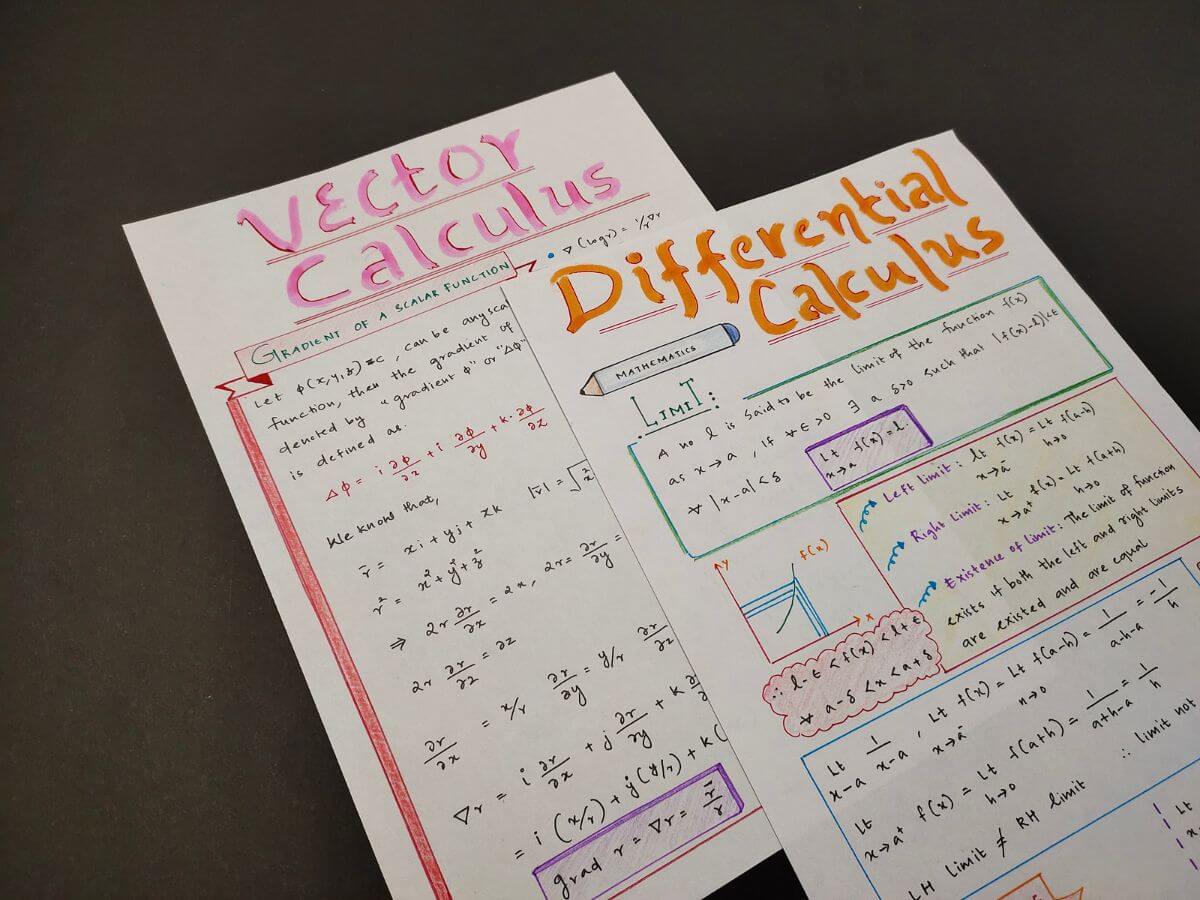 Vector
Calculus
• ∇ (log r) = 1/r ∇r
GRADIENT OF A SCALAR FUNCTION
Let φ(x,y,z) = c, can be any sca
function, then the gradient of
denoted by "gradient φ" or "Δφ"
is defined as.
Δφ = i ∂φ/∂x + i ∂φ/∂y + k · ∂φ/∂z
We know that,
|r̄| = √x²
r̄ = xi + yj + zk
r² = x² + y² + z²
⇒ 2r ∂r/∂x = 2x, 2r = ∂r/∂y =
2r ∂r/∂z = ∂z
∂r/∂x = x/r ∂r/∂y = y/r ∂r/∂z
∇r = i ∂r/∂x + j ∂r/∂y + k ∂r/∂
= i (x/r) + j (y/r) + k (
grad r = ∇r = r̄/r
Differential
Calculus
MATHEMATICS
LIMIT:
A no l is said to be the limit of the function f(x)
as x→a, if ∀ ∈ >0 ∃ a δ>0 such that |f(x)-l|<ε
∀ |x-a| < δ
Lt x→a f(x) = l.
Left limit: lt x→a⁻ f(x) = Lt h→0 f(a-h)
Right Limit: Lt x→a⁺ f(x) = Lt h→0 f(a+h)
Existence of limit: The limit of function
exists if both the left and right limits
are existed and are equal
y
f(x)
x
∴ l-ε < f(x) < l+ε
∀ a-δ < x < a+δ
Lt x-a 1/x-a, Lt x→a⁻ f(x) = Lt n→0 f(a-h) = 1/a-h-a = -1/h
Lt x→a⁺ f(x) = Lt h→0 f(a+h) = 1/a+h-a = 1/h
LH Limit ≠ RH limit ∴ limit not
Lt